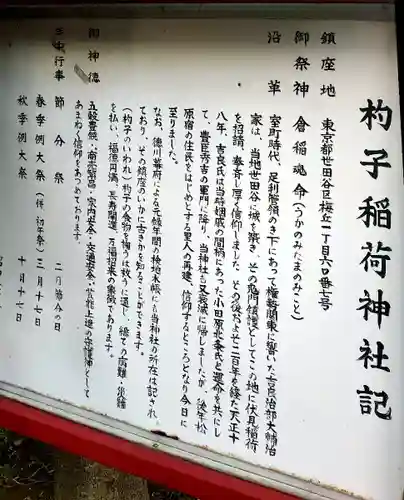 杓子稲荷神社記
鎮座地　東京都世田谷区梅丘一丁目六〇番七号
御祭神　倉稲魂命(うかのみたまのみこと)
沿革　室町時代、足利管領の下にあって権勢関東に響いた吉良治部大輔治
家は、当地世田谷に城を築き、その鬼門鎮護としてこの地に伏見稲荷
を招請、奉斎し厚く信仰しました。その後およそ二百年を経た天正十
八年、吉良氏は当時姻戚の間柄にあった小田原北条氏と運命を共にし
て、豊臣秀吉の軍門に降り、当神社も又衰滅に帰しましたが、後年松
原宿の住民をはじめとする里人の再建、信仰するところとなり今日に
至りました。
なお、徳川幕府による元禄年間の検地水帳にも当神社の所在は記され
ており、その鎮座のいかに古きかを知ることができます。
(杓子のいわれ)杓子の食物を掬うは救うに通じ、総ての病難・災難
を払い、福徳円満、長寿開運、万福招来の象徴であります。
御神徳　五穀豊饒・商売繁昌・家内安全・交通安全・芸能上達の守護神として
あまねく信仰をあつめております。
主な行事　節分祭　二月節分の日
春季例大祭(併、初午祭)三月十七日
秋季例大祭　十月十七日